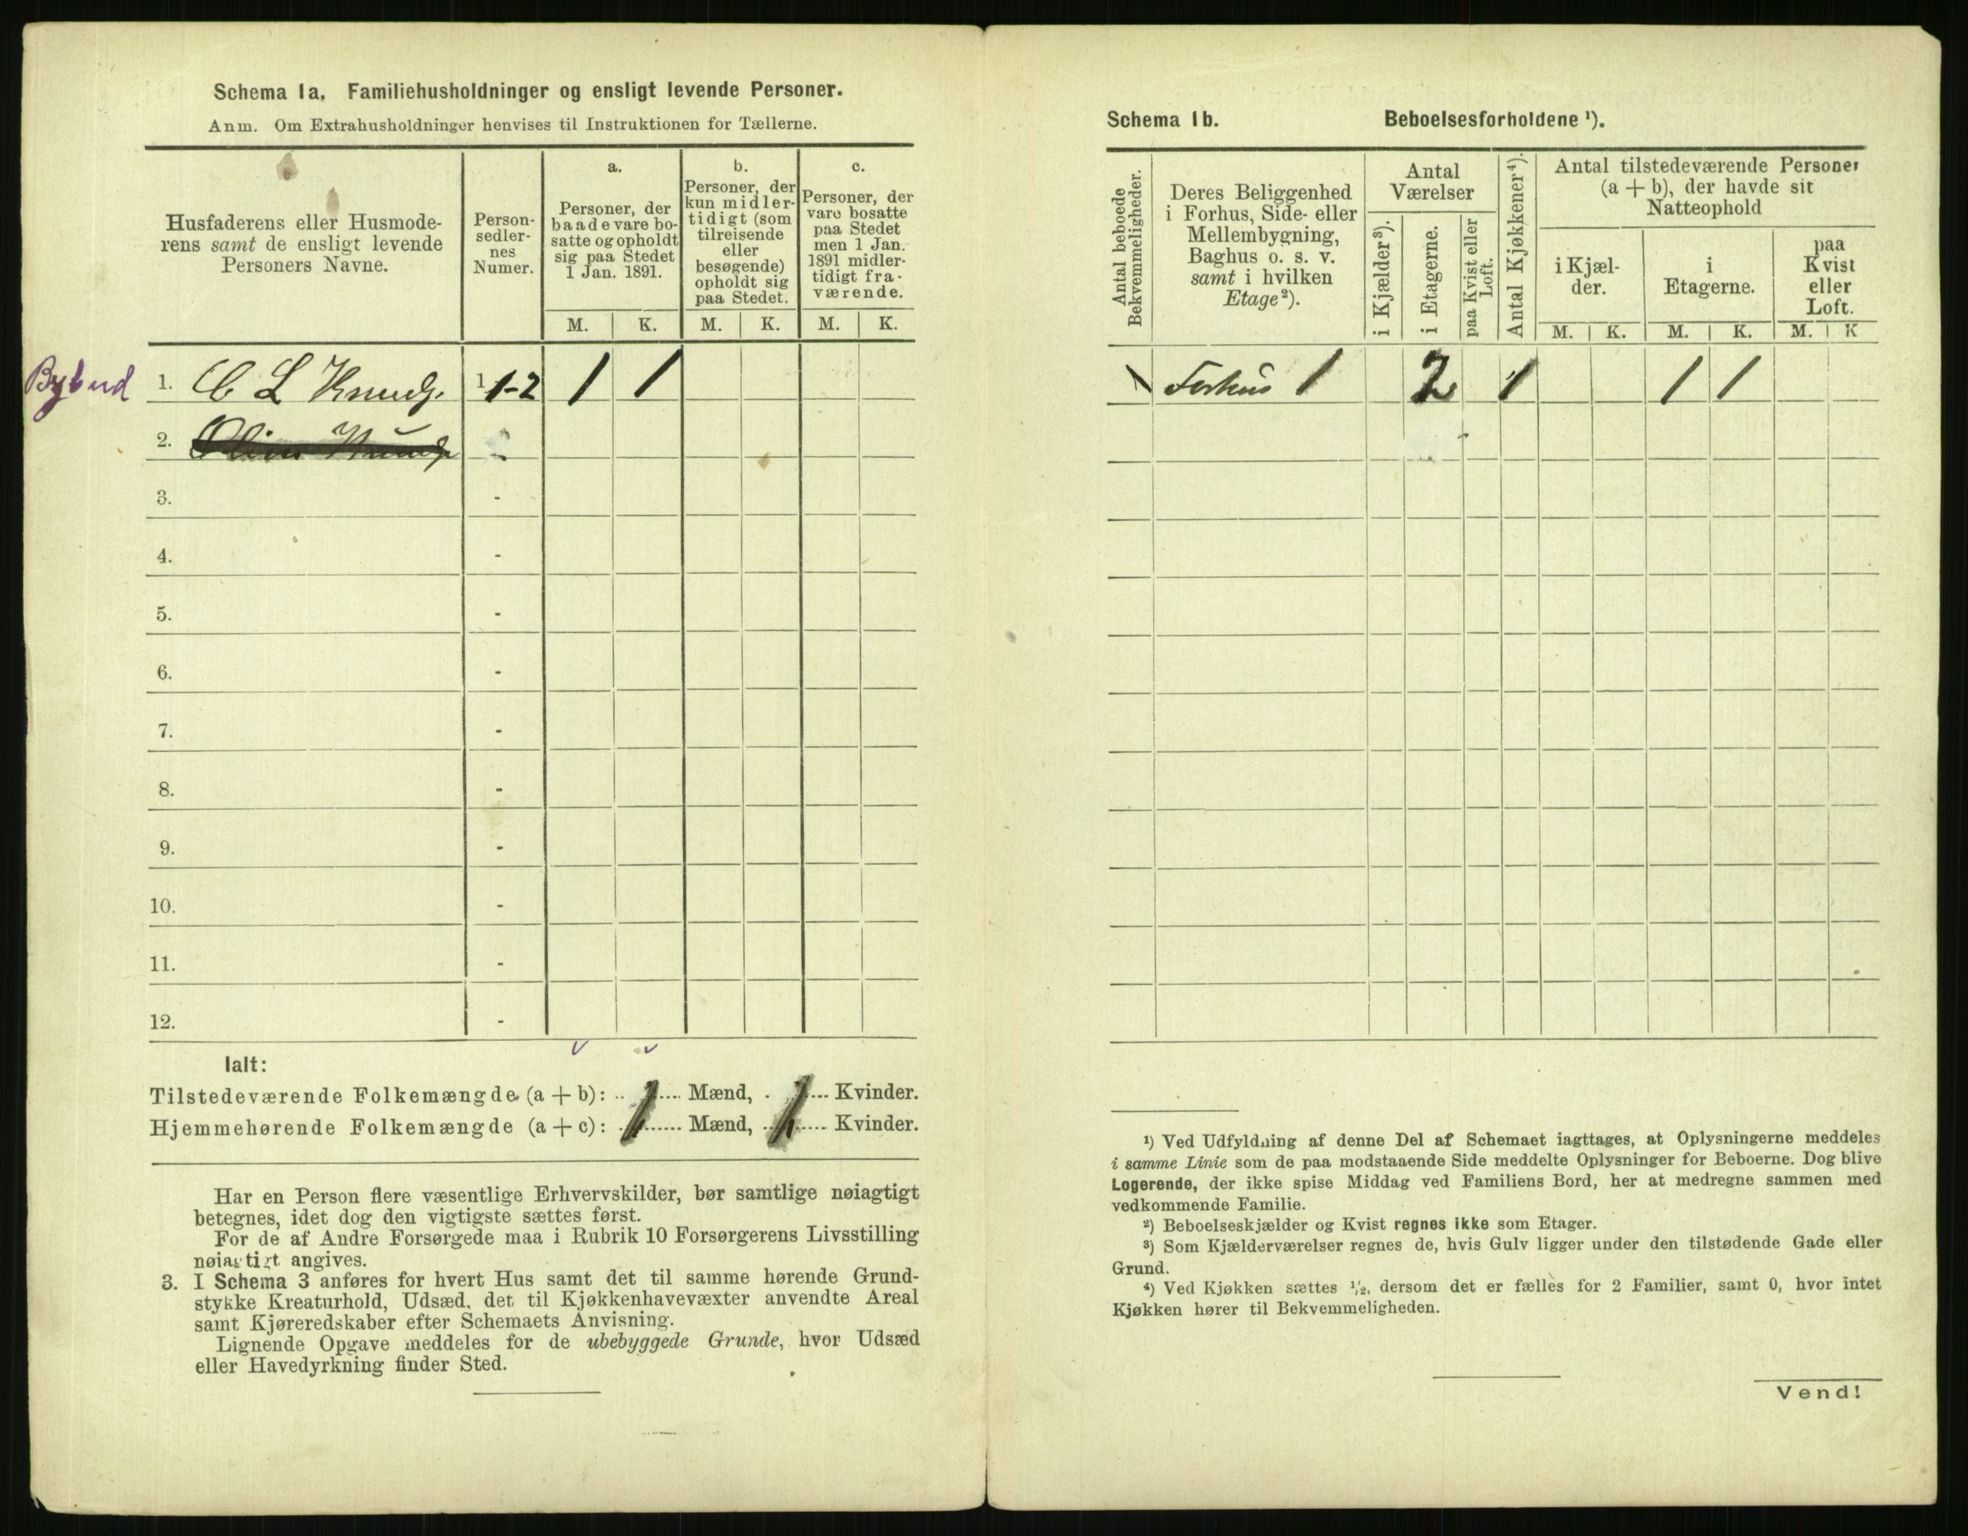 Schema 1a. Familiehusholdninger og ensligt levende Personer.
Anm. Om Extrahusholdninger henvises til Instruktionen for Tællerne.
Husfaderens eller Husmode-
rens samt de ensligt levende
Personers Navne.
Person-
sedler-
nes
Numer.
a.
Personer, der
baade vare bo-
satte og opholdt
sig paa Stedet
1 Jan. 1891.
b.
Personer, der
kun midler-
tidigt (som
tilreisende
eller
besøgende)
opholdt sig
paa Stedet.
c.
Personer, der
vare bosatte
paa Stedet
men 1 Jan.
1891 midler-
tidigt fra-
værende.
M. K. M. K. M. K.
Bybud 1. C L Knuds. 1-2 1 1
2.
3. -
4. -
5. -
6. -
7. -
8. -
9. -
10. -
11. -
12. -
Ialt:
Tilstedeværende Folkemængde (a + b): 1 Mænd, 1 Kvinder.
Hjemmehørende Folkemængde (a + c): 1 Mænd, 1 Kvinder.
Har en Person flere væsentlige Erhvervskilder, bør samtlige nøiagtigt
betegnes, idet dog den vigtigste sættes først.
For de af Andre Forsørgede maa i Rubrik 10 Forsørgerens Livsstilling
nøiagtigt angives.
3. I Schema 3 anføres for hvert Hus samt det til samme hørende Grund-
stykke Kreaturhold, Udsæd, det til Kjøkkenhavevæxter anvendte Areal
samt Kjøreredskaber efter Schemaets Anvisning.
Lignende Opgave meddeles for de ubebyggede Grunde, hvor Udsæd
eller Havedyrkning finder Sted.
Schema 1b. Beboelsesforholdene ¹).
Antal beboede
Bekvemmeligheder.
Deres Beliggenhed
i Forhus, Side- eller
Mellembygning,
Baghus o. s. v.
samt i hvilken
Etage²).
Antal
Værelser
i Kjælder³).
i Etagerne.
paa Kvist eller
Loft.
Antal Kjøkkener⁴).
Antal tilstedeværende Personer
(a + b), der havde sit
Natteophold
i Kjæl-
der.
i
Etagerne.
paa
Kvist
eller
Loft.
M. K. M. K. M. K
1 Forhus 1 2 1 1 1
¹) Ved Udfyldning af denne Del af Schemaet iagttages, at Oplysningerne meddeles
i samme Linie som de paa modstaaende Side meddelte Oplysninger for Beboerne. Dog blive
Logerende, der ikke spise Middag ved Familiens Bord, her at medregne sammen med
vedkommende Familie.
²) Beboelseskjælder og Kvist regnes ikke som Etager.
³) Som Kjælderværelser regnes de, hvis Gulv ligger under den tilstødende Gade eller
Grund.
⁴) Ved Kjøkken sættes ¹/₂, dersom det er fælles for 2 Familier, samt 0, hvor intet
Kjøkken hører til Bekvemmeligheden.
Vend!